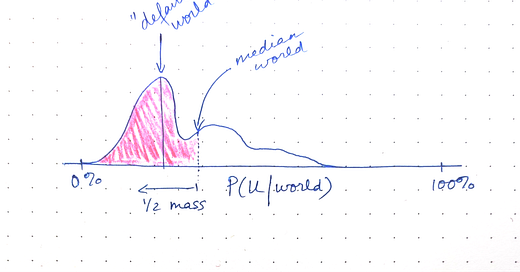 world"
median
world
0%
100%
P(U/world)
1/2 mass